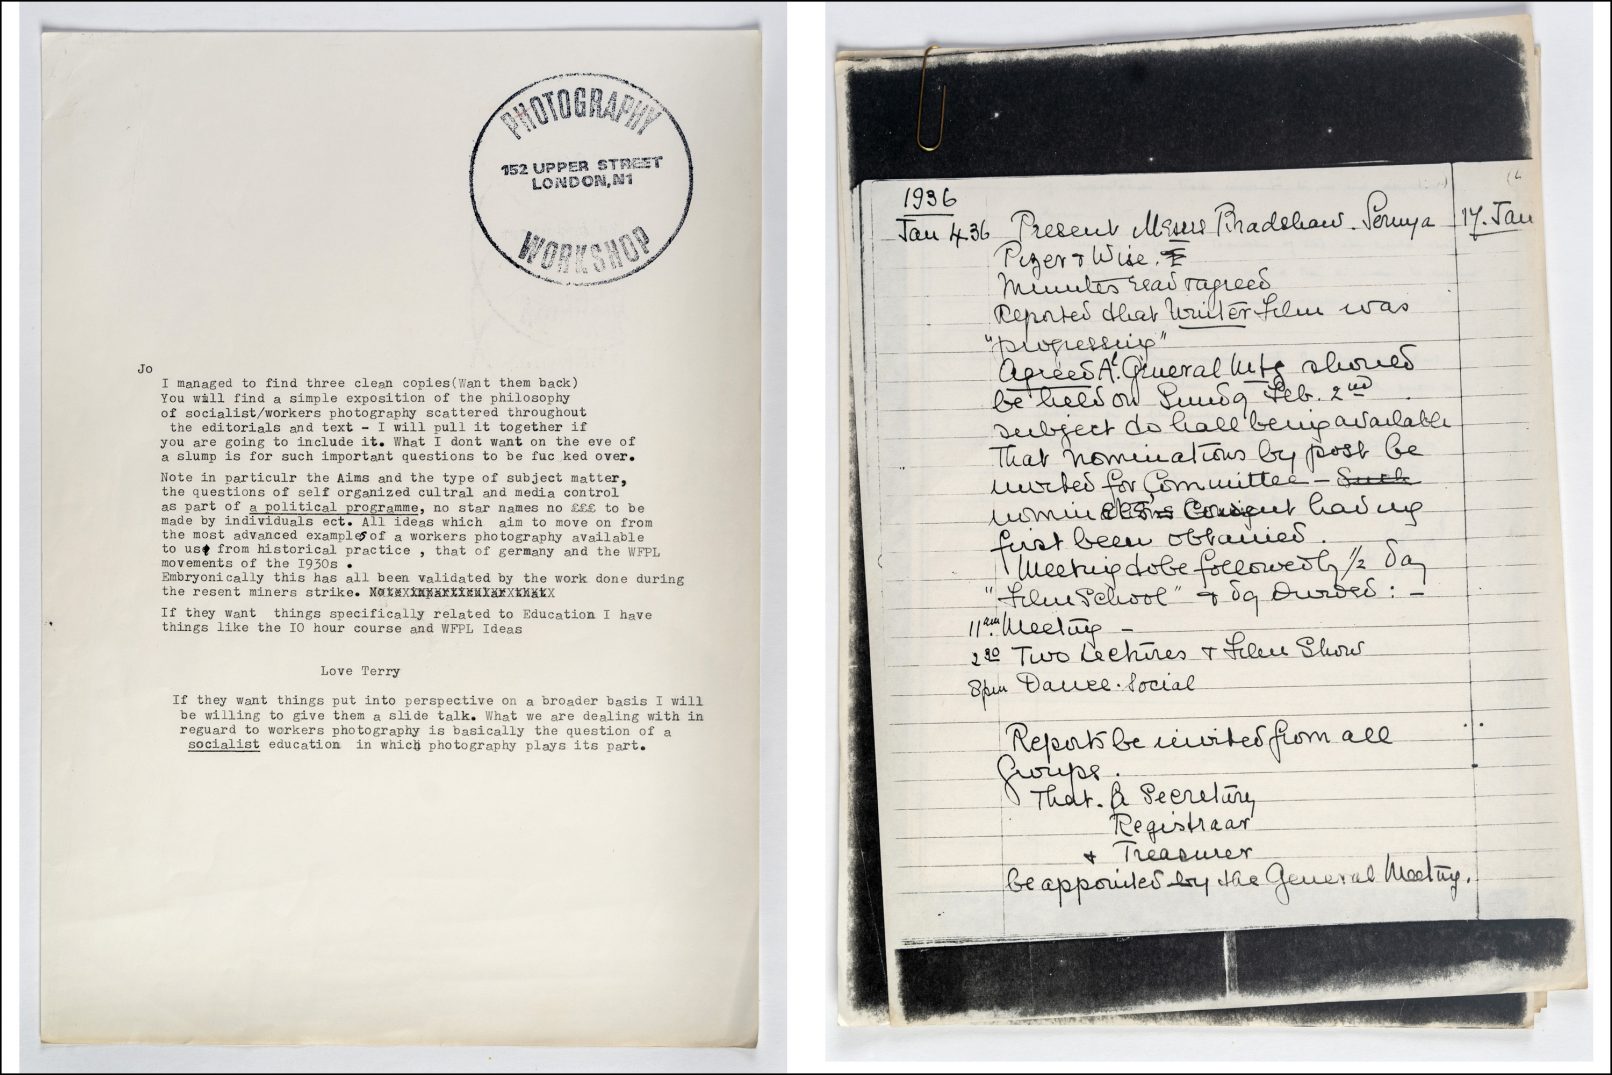 PHOTOGRAPHY
152 UPPER STREET
LONDON, N1
WORKSHOP
Jo
I managed to find three clean copies(Want them back)
You will find a simple exposition of the philosophy
of socialist/workers photography scattered throughout
the editorials and text - I will pull it together if
you are going to include it. What I dont want on the eve of
a slump is for such important questions to be fuc ked over.
Note in particulr the Aims and the type of subject matter,
the questions of self organized cultral and media control
as part of a political programme, no star names no £££ to be
made by individuals ect. All ideas which aim to move on from
the most advanced examples of a workers photography available
to us from historical practice , that of germany and the WFPL
movements of the I930s .
Embryonically this has all been validated by the work done during
the resent miners strike.
If they want things specifically related to Education I have
things like the IO hour course and WFPL Ideas
Love Terry
If they want things put into perspective on a broader basis I will
be willing to give them a slide talk. What we are dealing with in
reguard to workers photography is basically the question of a
socialist education in which photography plays its part.
1936
Jan 4.36 Present Messrs Bradshaw. 
Pizer & Wise.
Minutes read & agreed
Reported that Winter Film was
"progressing"
Agreed A. General Mtg should
be held on Sunday Feb. 2nd
subject to hall being available
That nominations by post be
invited for Committee - Such
nominations Consent having
first been obtained.
Meeting to be followed by 1/2 day
"Film School" & 
11am Meeting -
2 30 Two Lectures & Film Show
8pm Dance. Social
Reports be invited from all
Groups.
That. A Secretary
Registraar
& Treasurer
be appointed by the General Meeting.
17. Jan